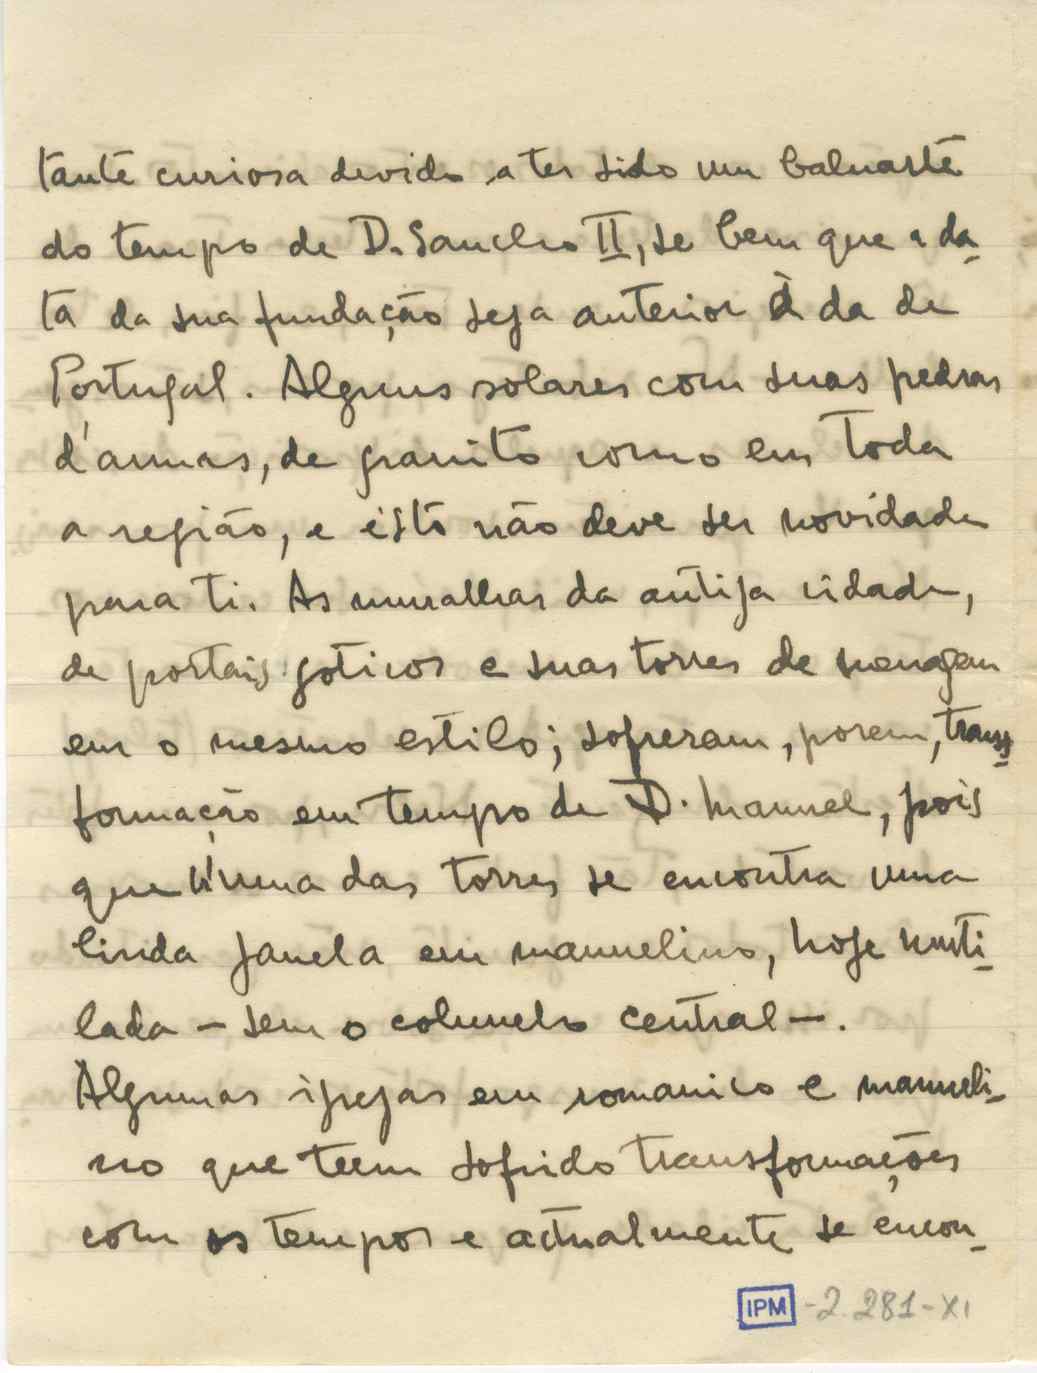 tante curiosa devido a ter sido um baluarte
do tempo de D. Sancho II, se bem que a da-
ta da sua fundação seja anterior à da de
Portugal. Alguns solares com suas pedras
d'armas, de granito como em toda
a região, e isto não deve ser novidade
para ti. As muralhas da antiga cidade,
de portais goticos e suas torres de menagem
em o mesmo estilo; sofreram, porem, trans-
formação em tempo de D. Manuel, pois
que n'uma das torres se encontra uma
linda janela em manuelino, hoje muti-
lada - sem o columelo central -.
Algumas igrejas em romanico e manueli-
no que teem sofrido transformações
com os tempos e actualmente se encon-
IPM -2.281-XI